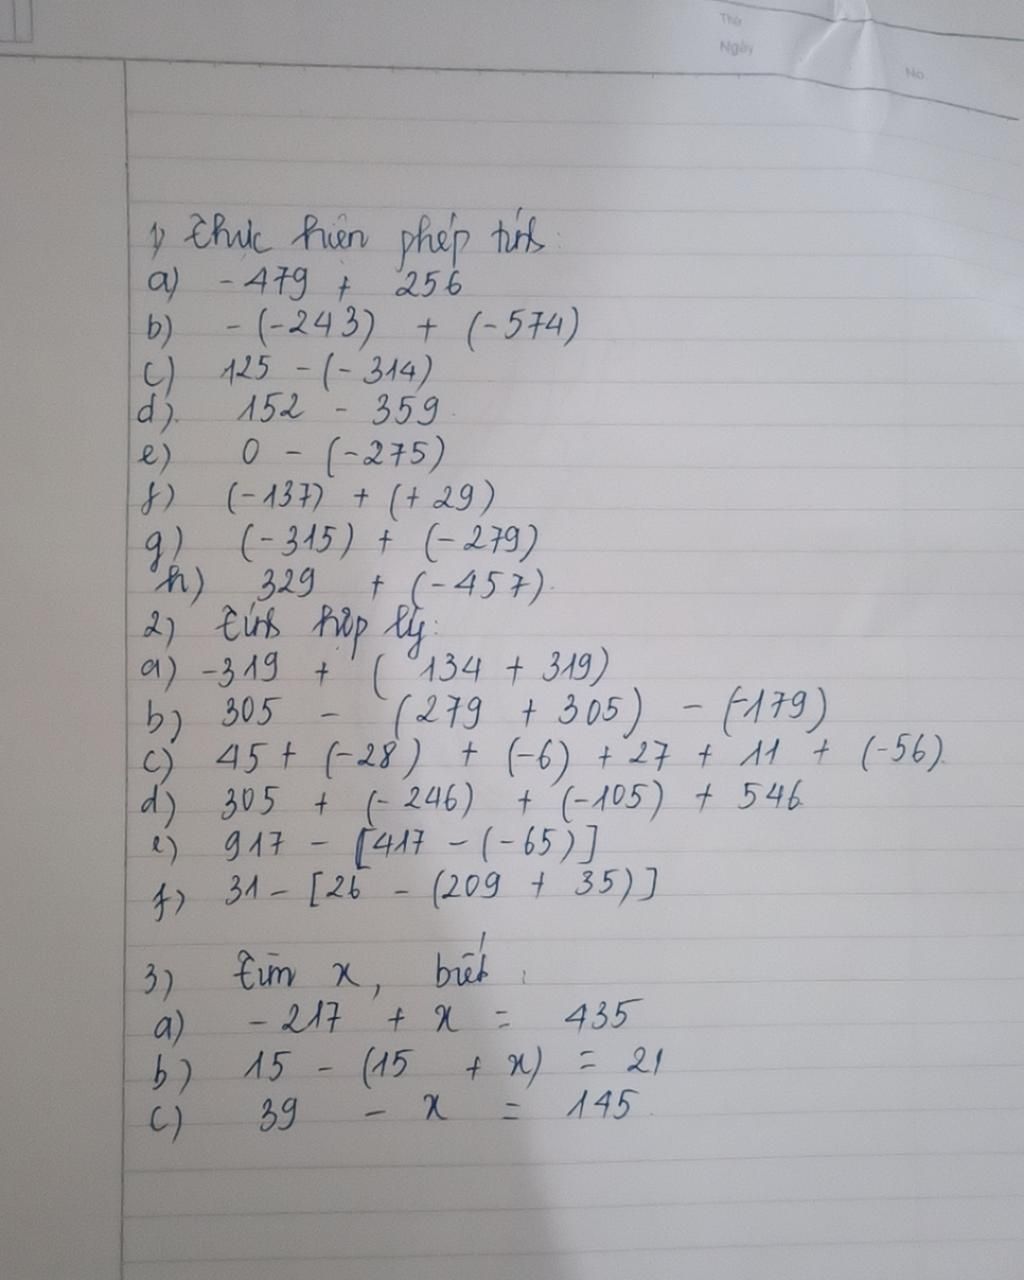 Thứ
Ngày
No.
1) Thực hiện phép tính:
a) -479 + 256
b) -(-243) + (-574)
c) 125 -(-314)
d) 152 - 359
e) 0 - (-275)
f) (-137) + (+29)
g) (-315) + (-279)
h) 329 + (-457)
2) Tính hợp lý:
a) -319 + ( 134 + 319)
b) 305 - (279 + 305) - (-179)
c) 45 + (-28) + (-6) + 27 + 11 + (-56)
d) 305 + (-246) + (-105) + 546
e) 917 - [417 - (-65)]
f) 31 - [26 - (209 + 35)]
3) Tìm x, biết:
a) -217 + x = 435
b) 15 - (15 + x) = 21
c) 39 - x = 145